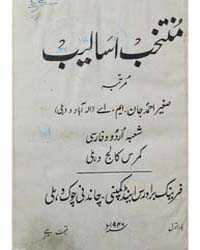 منتخب اسالیب
مرتبہ
صغیر احمد جان۔ ایم، اے (الہ آباد و دہلی)
شعبہ اُردو و فارسی
کمرس کالج دہلی
برادرس اینڈ کمپنی، چاندنی چوک، دہلی
۱۹۴۶